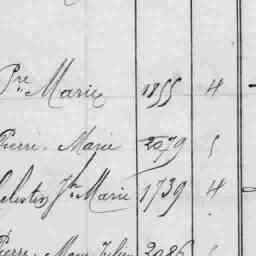 Pre Marie 1855 4
Pierre Marie 2079 5
Celestin Jh Marie 1739 4
Pierre Marie 2086